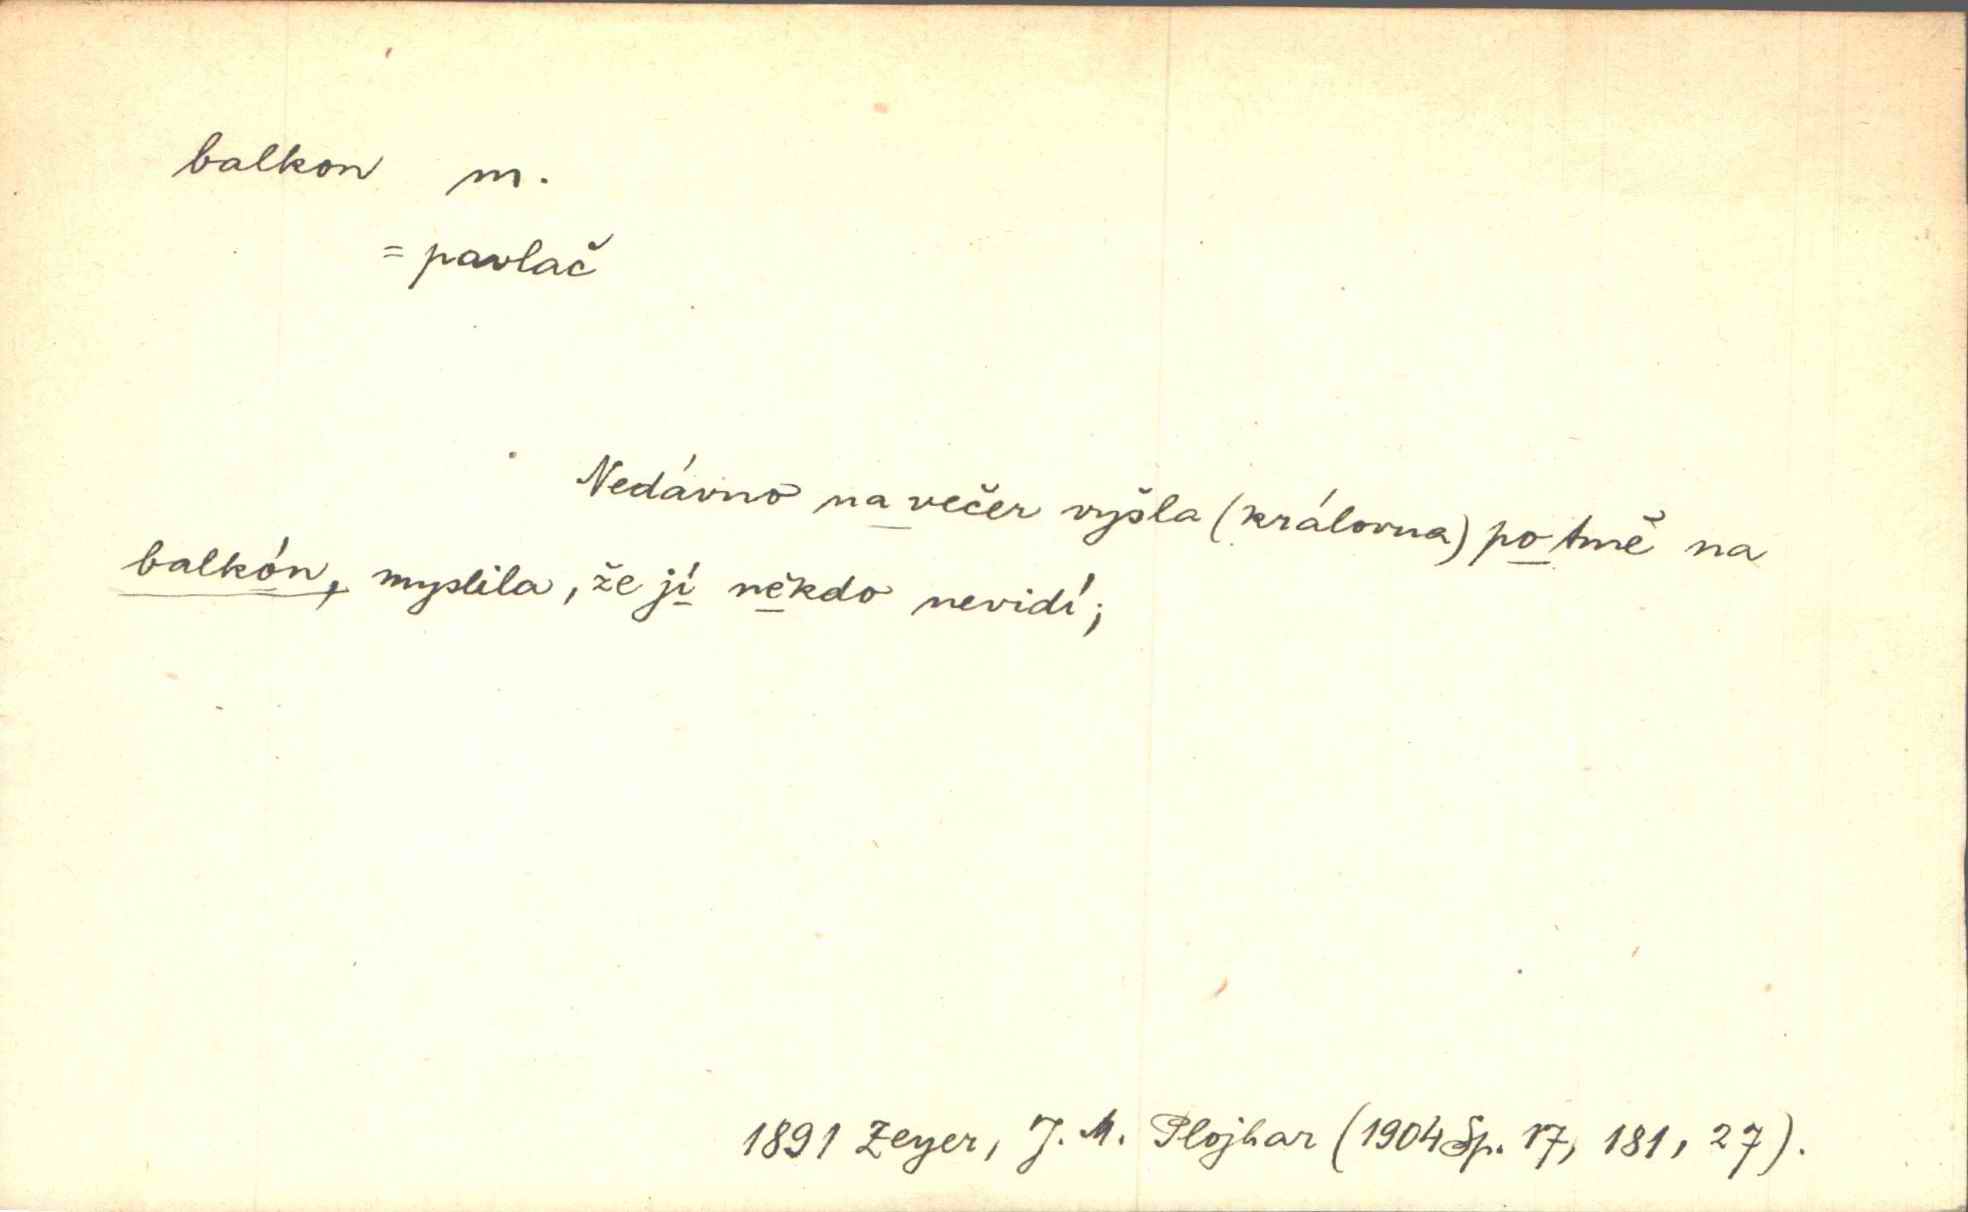 balkon m.
= pavlač
Nedávno na večer vyšla (královna) po tmě na
balkón, myslila, že jí někdo nevidí;
1891 Zeyer, J. M. Plojhar (1904 Sp. 17, 181, 27).